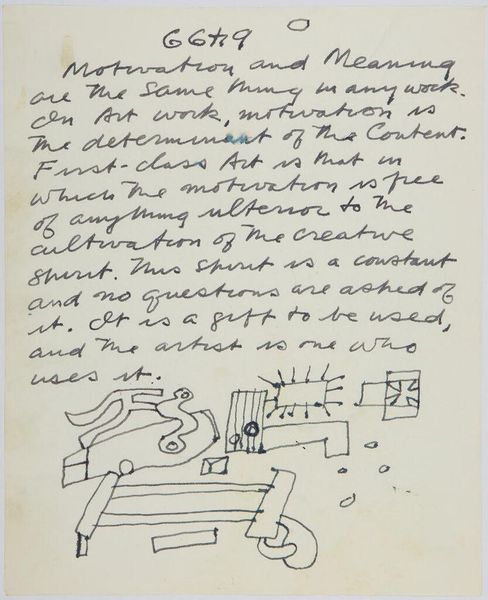 Motivation and Meaning
are the same thing in any work.
In Art work, motivation is
the determinant of the Content.
First-class Art is that in
which the motivation is free
of anything ulterior to the
cultivation of the creative
spirit. This spirit is a constant
and no questions are asked of
it. It is a gift to be used,
and the artist is one who
uses it.